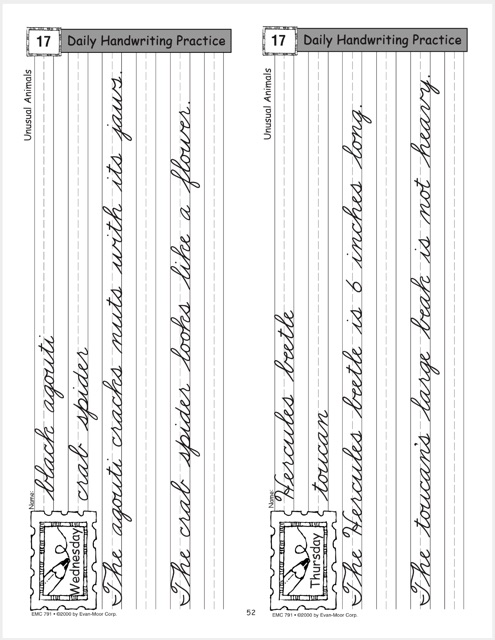 17
Daily Handwriting Practice
Unusual Animals
Name:
Wednesday
black agouti
crab spider
The agouti cracks nuts with its jaws.
The crab spider looks like a flower.
EMC 791 • ©2000 by Evan-Moor Corp.
52
17
Daily Handwriting Practice
Unusual Animals
Name:
Thursday
Hercules beetle
toucan
The Hercules beetle is 6 inches long.
The toucan's large beak is not heavy.
EMC 791 • ©2000 by Evan-Moor Corp.